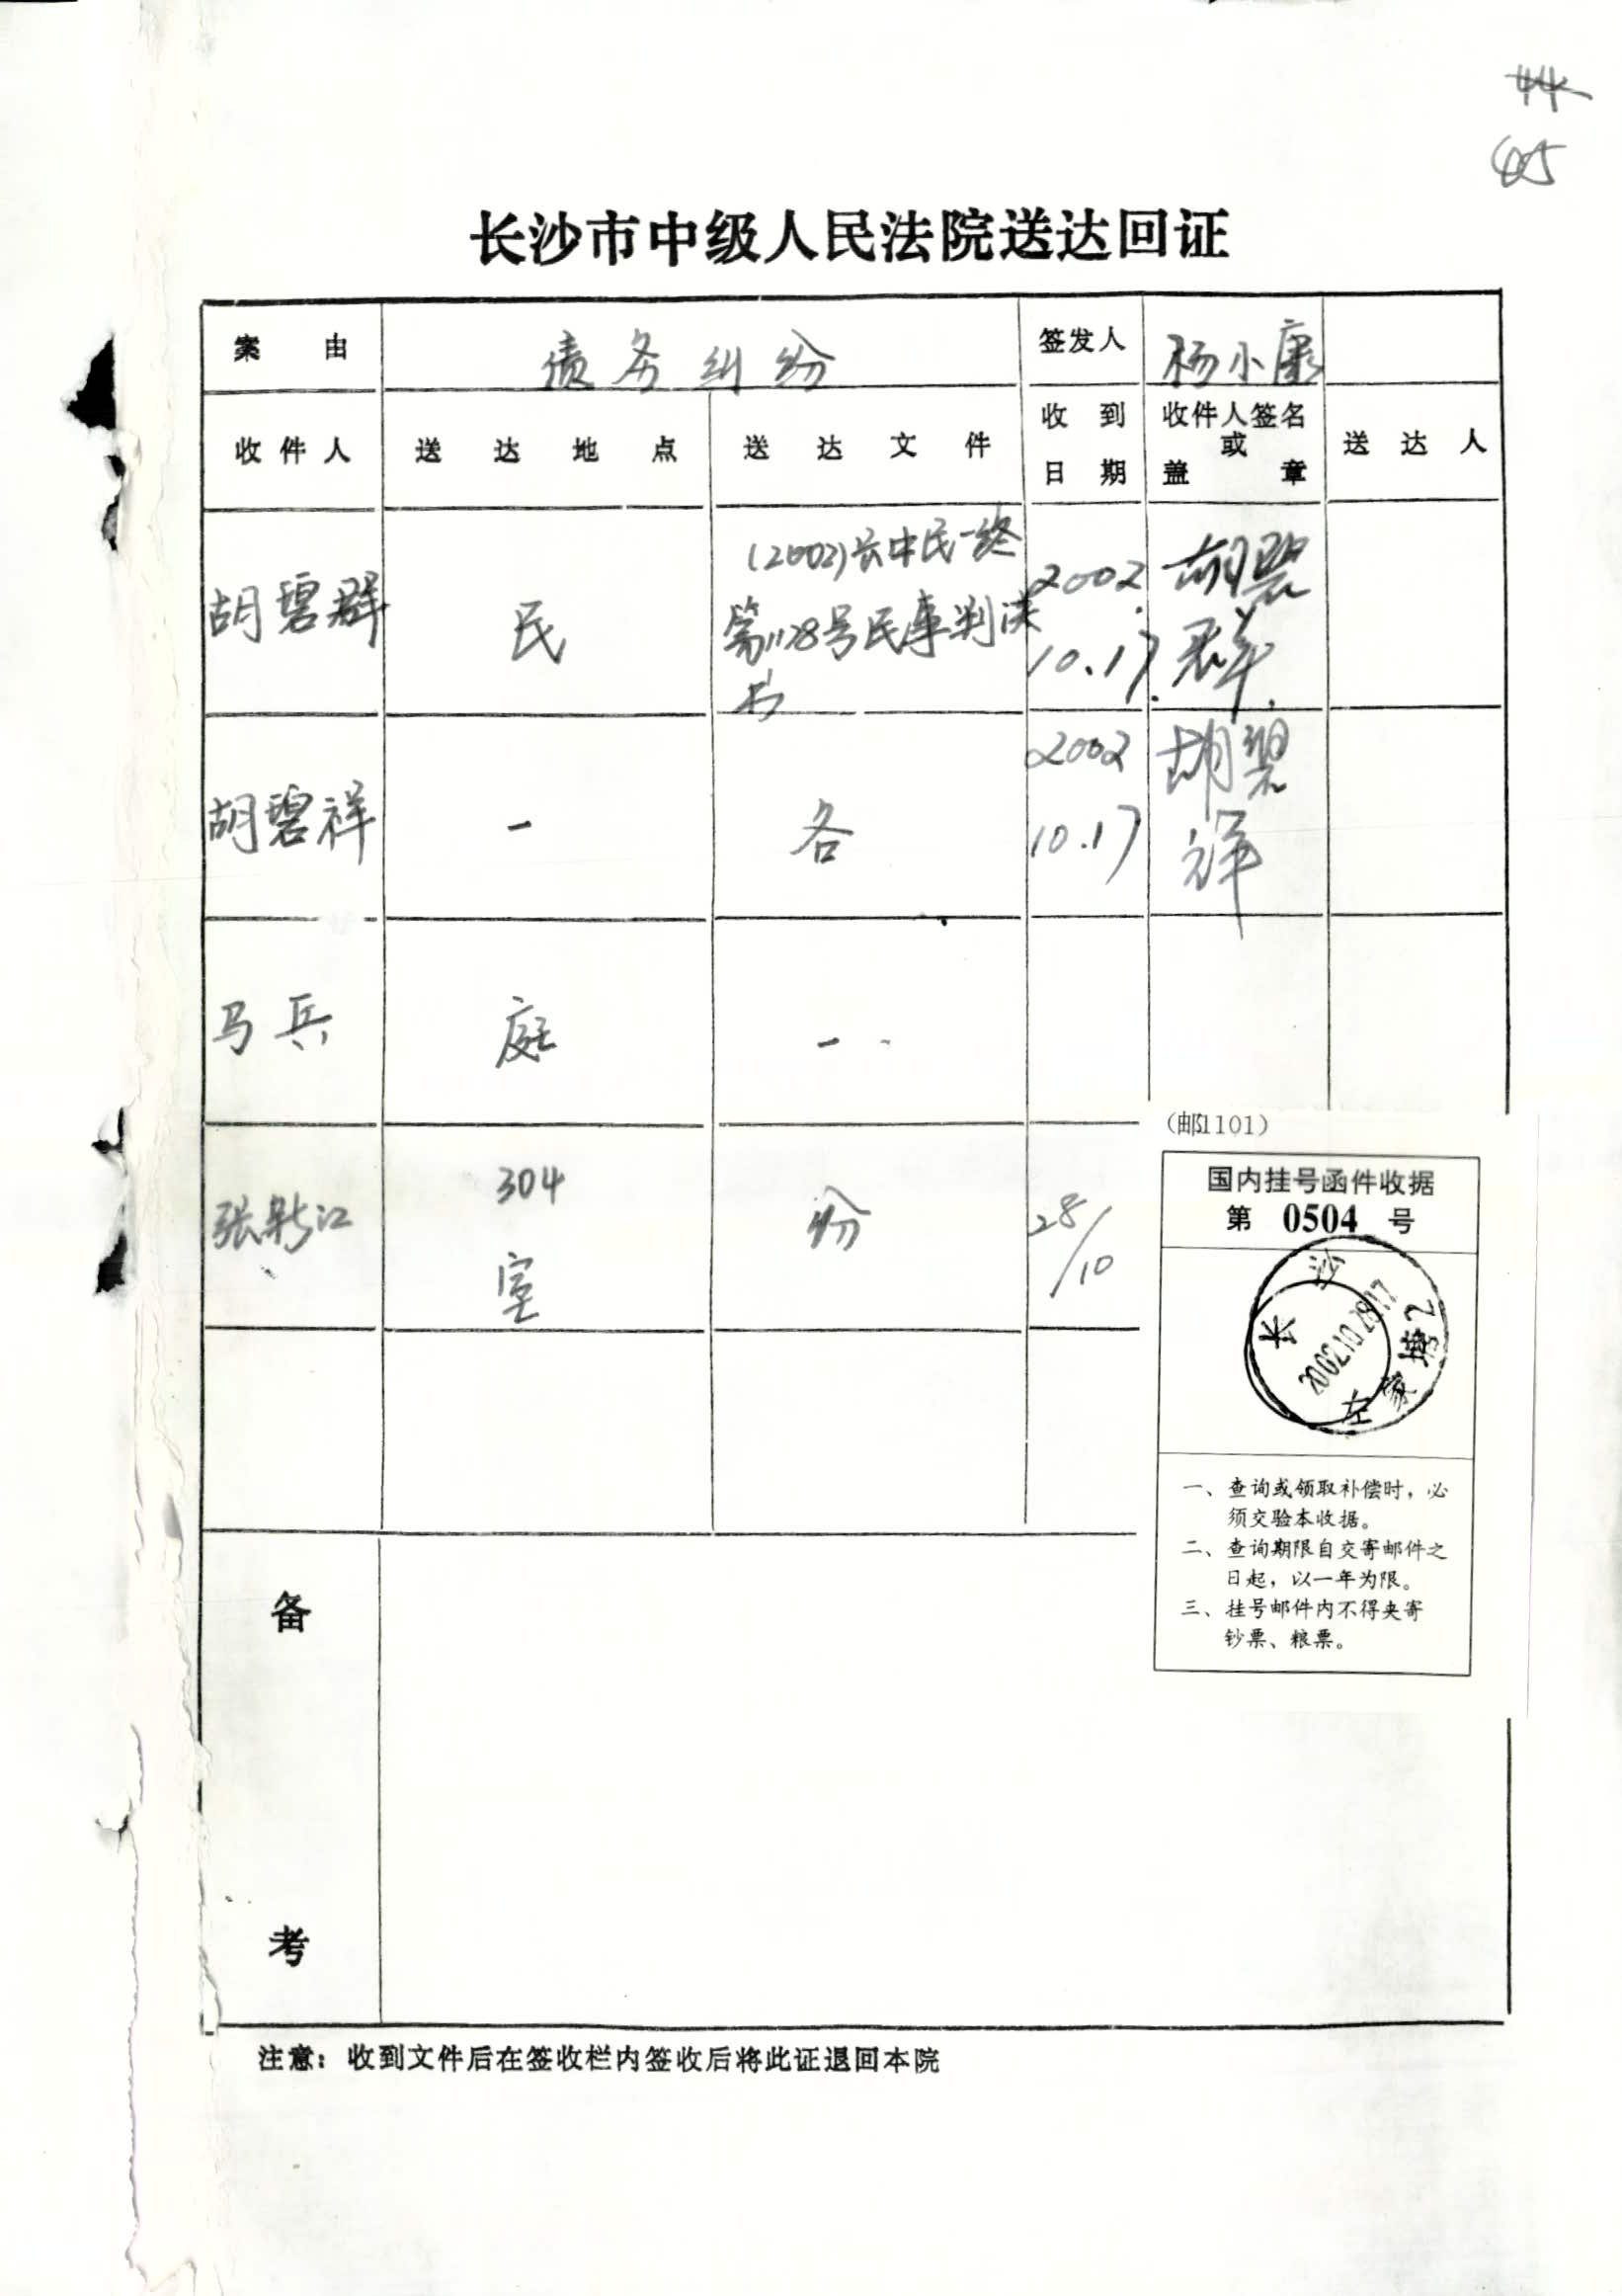 45
长沙市中级人民法院送达回证
案由 债务纠纷 签发人 杨小康
收件人 送达地点 送达文件 收到日期 收件人签名或盖章 送达人
胡碧群 民 (2002)长中民一终
第1128号民事判决
书 2002.
10.17. 胡碧
群.
胡碧祥 一 各 2002
10.17 胡碧
祥
马兵 庭 一
张新江 304
室 份 28/10
(邮1101)
国内挂号函件收据
第 0504 号
长沙
2002.10.28.17
左家塘2
一、查询或领取补偿时，必
须交验本收据。
二、查询期限自交寄邮件之
日起，以一年为限。
三、挂号邮件内不得夹寄
钞票、粮票。
备
考
注意：收到文件后在签收栏内签收后将此证退回本院